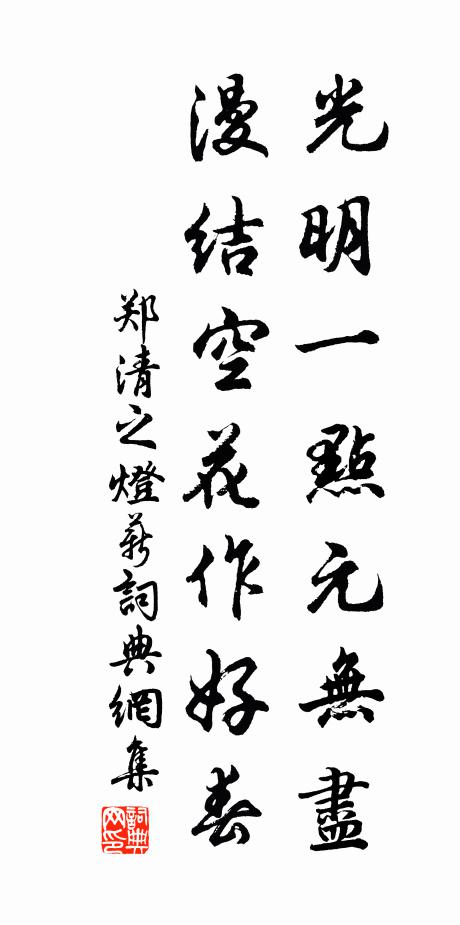 光明一點元無盡
漫結空花作好春
郑清之燈蕲詞典網集
詞典网印